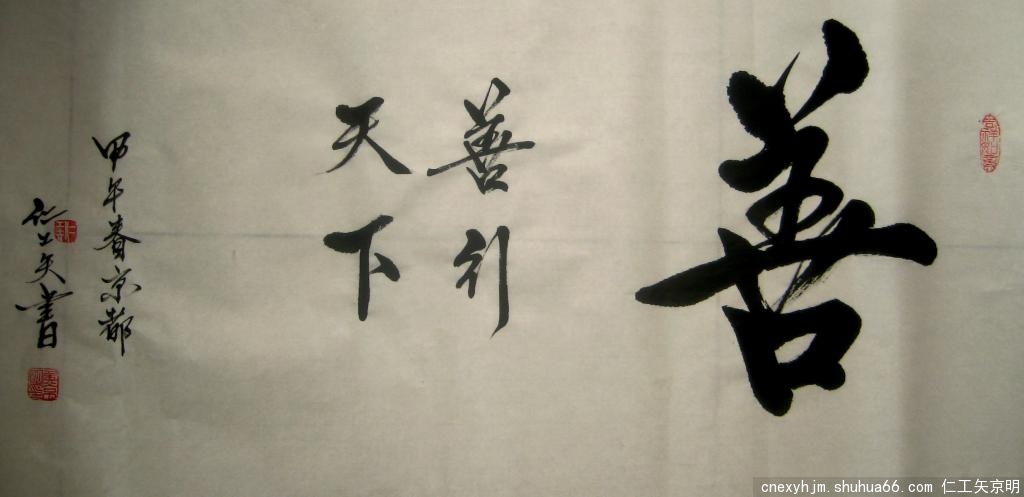 善
善行
天下
甲午春京都
仁工矢書
cnexyhjm.shuhua66.com 仁工矢京明